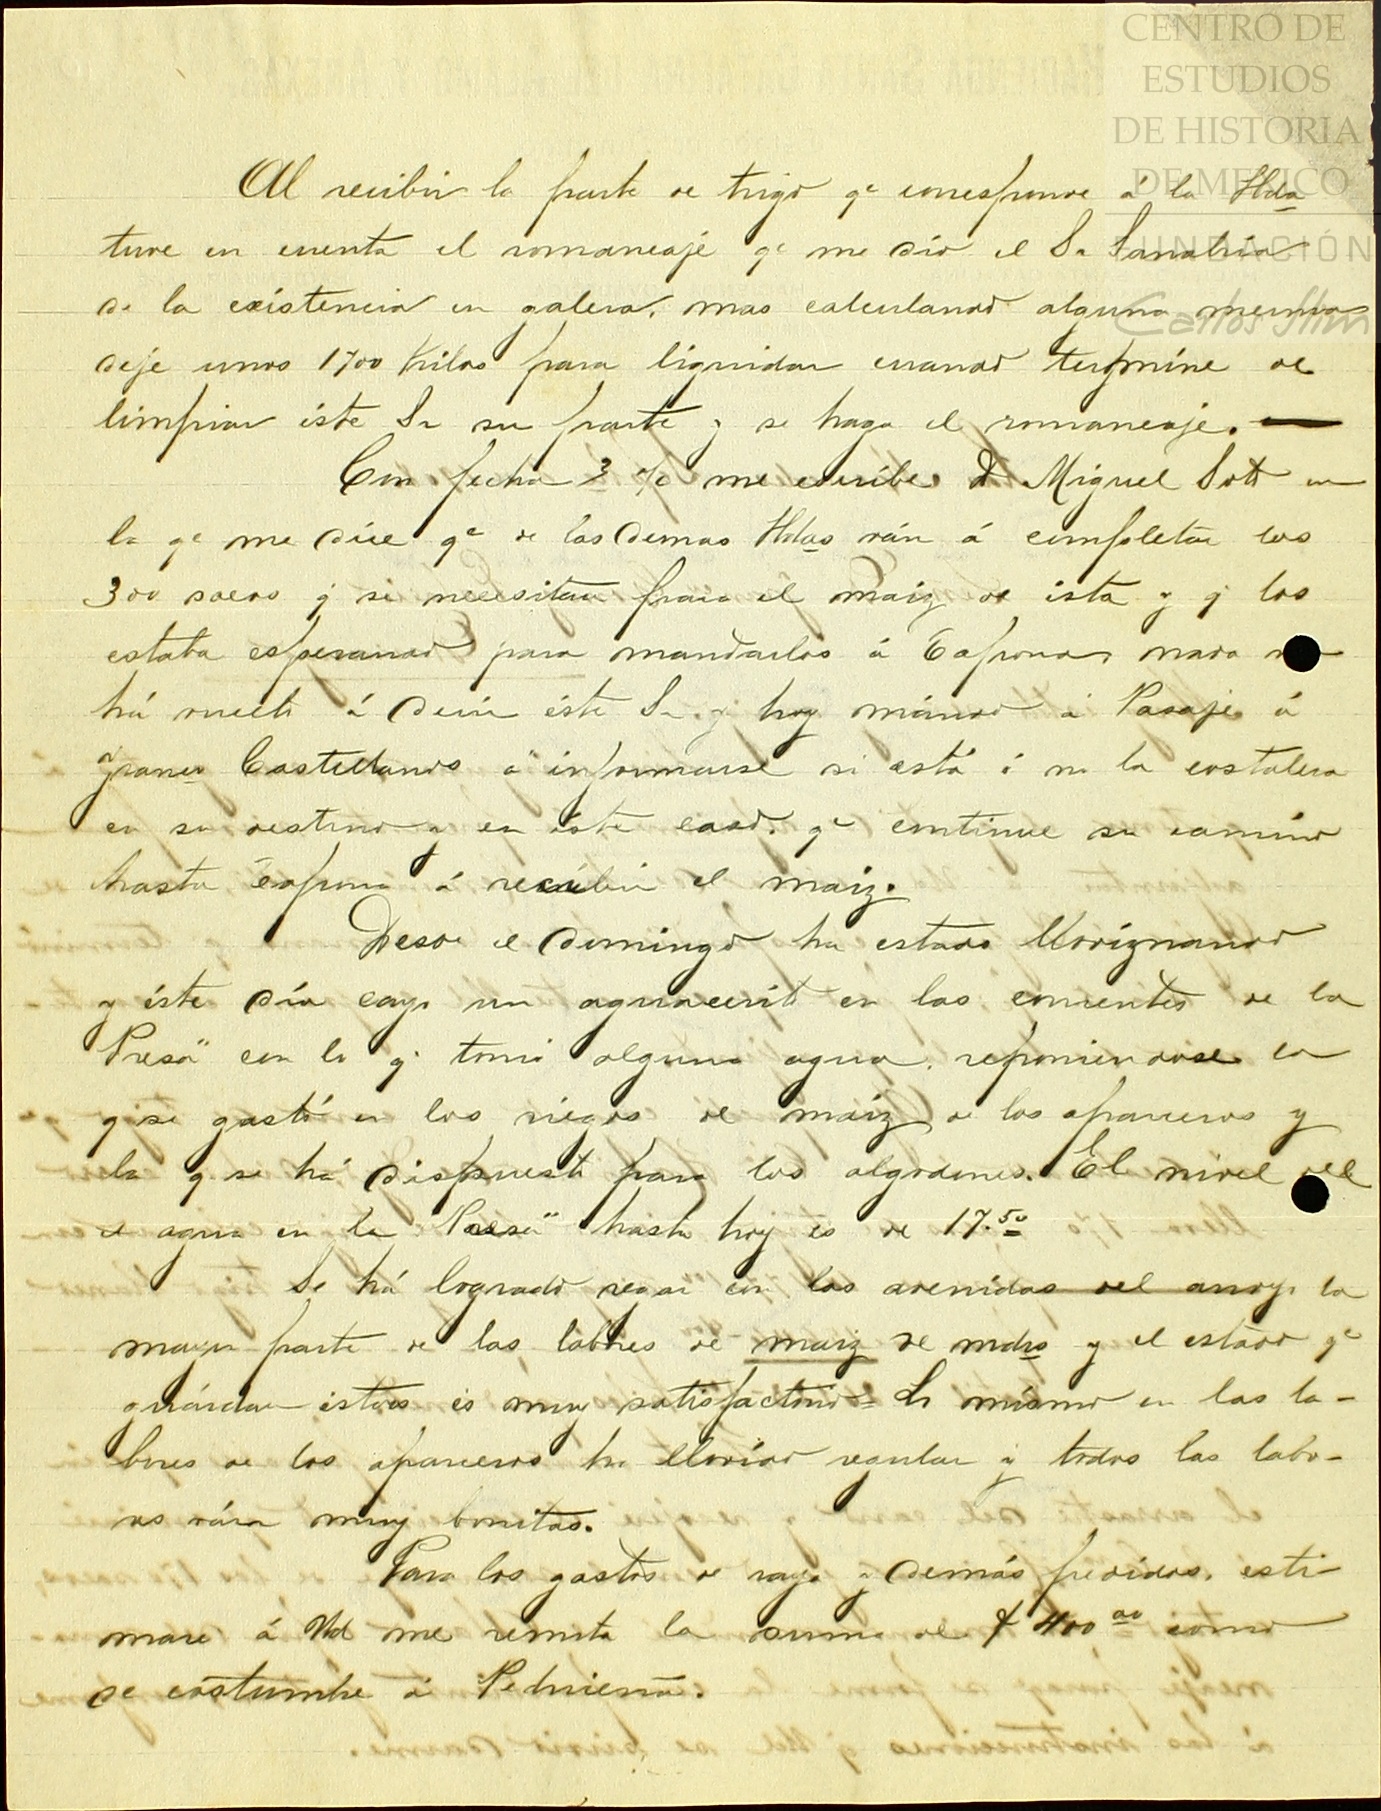 CENTRO DE
ESTUDIOS
DE HISTORIA
DE MÉXICO
FUNDACIÓN
Carlos Slim
Al recibir la parte de trigo qe corresponde á la Hda
tuve en cuenta el romaneaje qe me dió el Sr Sanabria
de la existencia en galera, mas calculando alguna merma
deje unos 1700 kilos para liquidar cuando termine de
limpiar éste Sr su parte y se haga el romaneaje. —
Con fecha 3 me escribe D Miguel Soto en
la qe me dice qe de las demas Hdas ván á completar los
300 sacos q se necesitan para el maiz de ésta y q los
estaba esperando para mandarlos á nada no
há vuelto á decir éste Sr. y hoy mándo á Pasaje á
Castellanos á informarse si está ó no la costalera
en su destino y en éste caso, qe continue su camino
hasta á recibir el maiz.
Desde el domingo ha estado lloviznando
y éste día cayo un aguacerito en las corrientes de la
"Presa" con lo q tomó alguna agua, reponiendose la
q se gastó en los riegos de maiz de los aparceros y
la q se há dispuesto para los algodones. El nivel del
el agua en la "Presa" hasta hoy es de 17.50
Se há logrado regar con las avenidas del arroyo la
mayor parte de las labores de maiz de mdio y el estado qe
guárdan éstas es muy satisfactorio = Lo mismo en las la-
bores de los aparceros ha llovido regular y todas las labo-
res ván muy bonitas.
Para los gastos de raya y demás pedidos, esti-
mare á Ud me remita la suma de $ 400 00 como
de costumbre á Pedriceña.